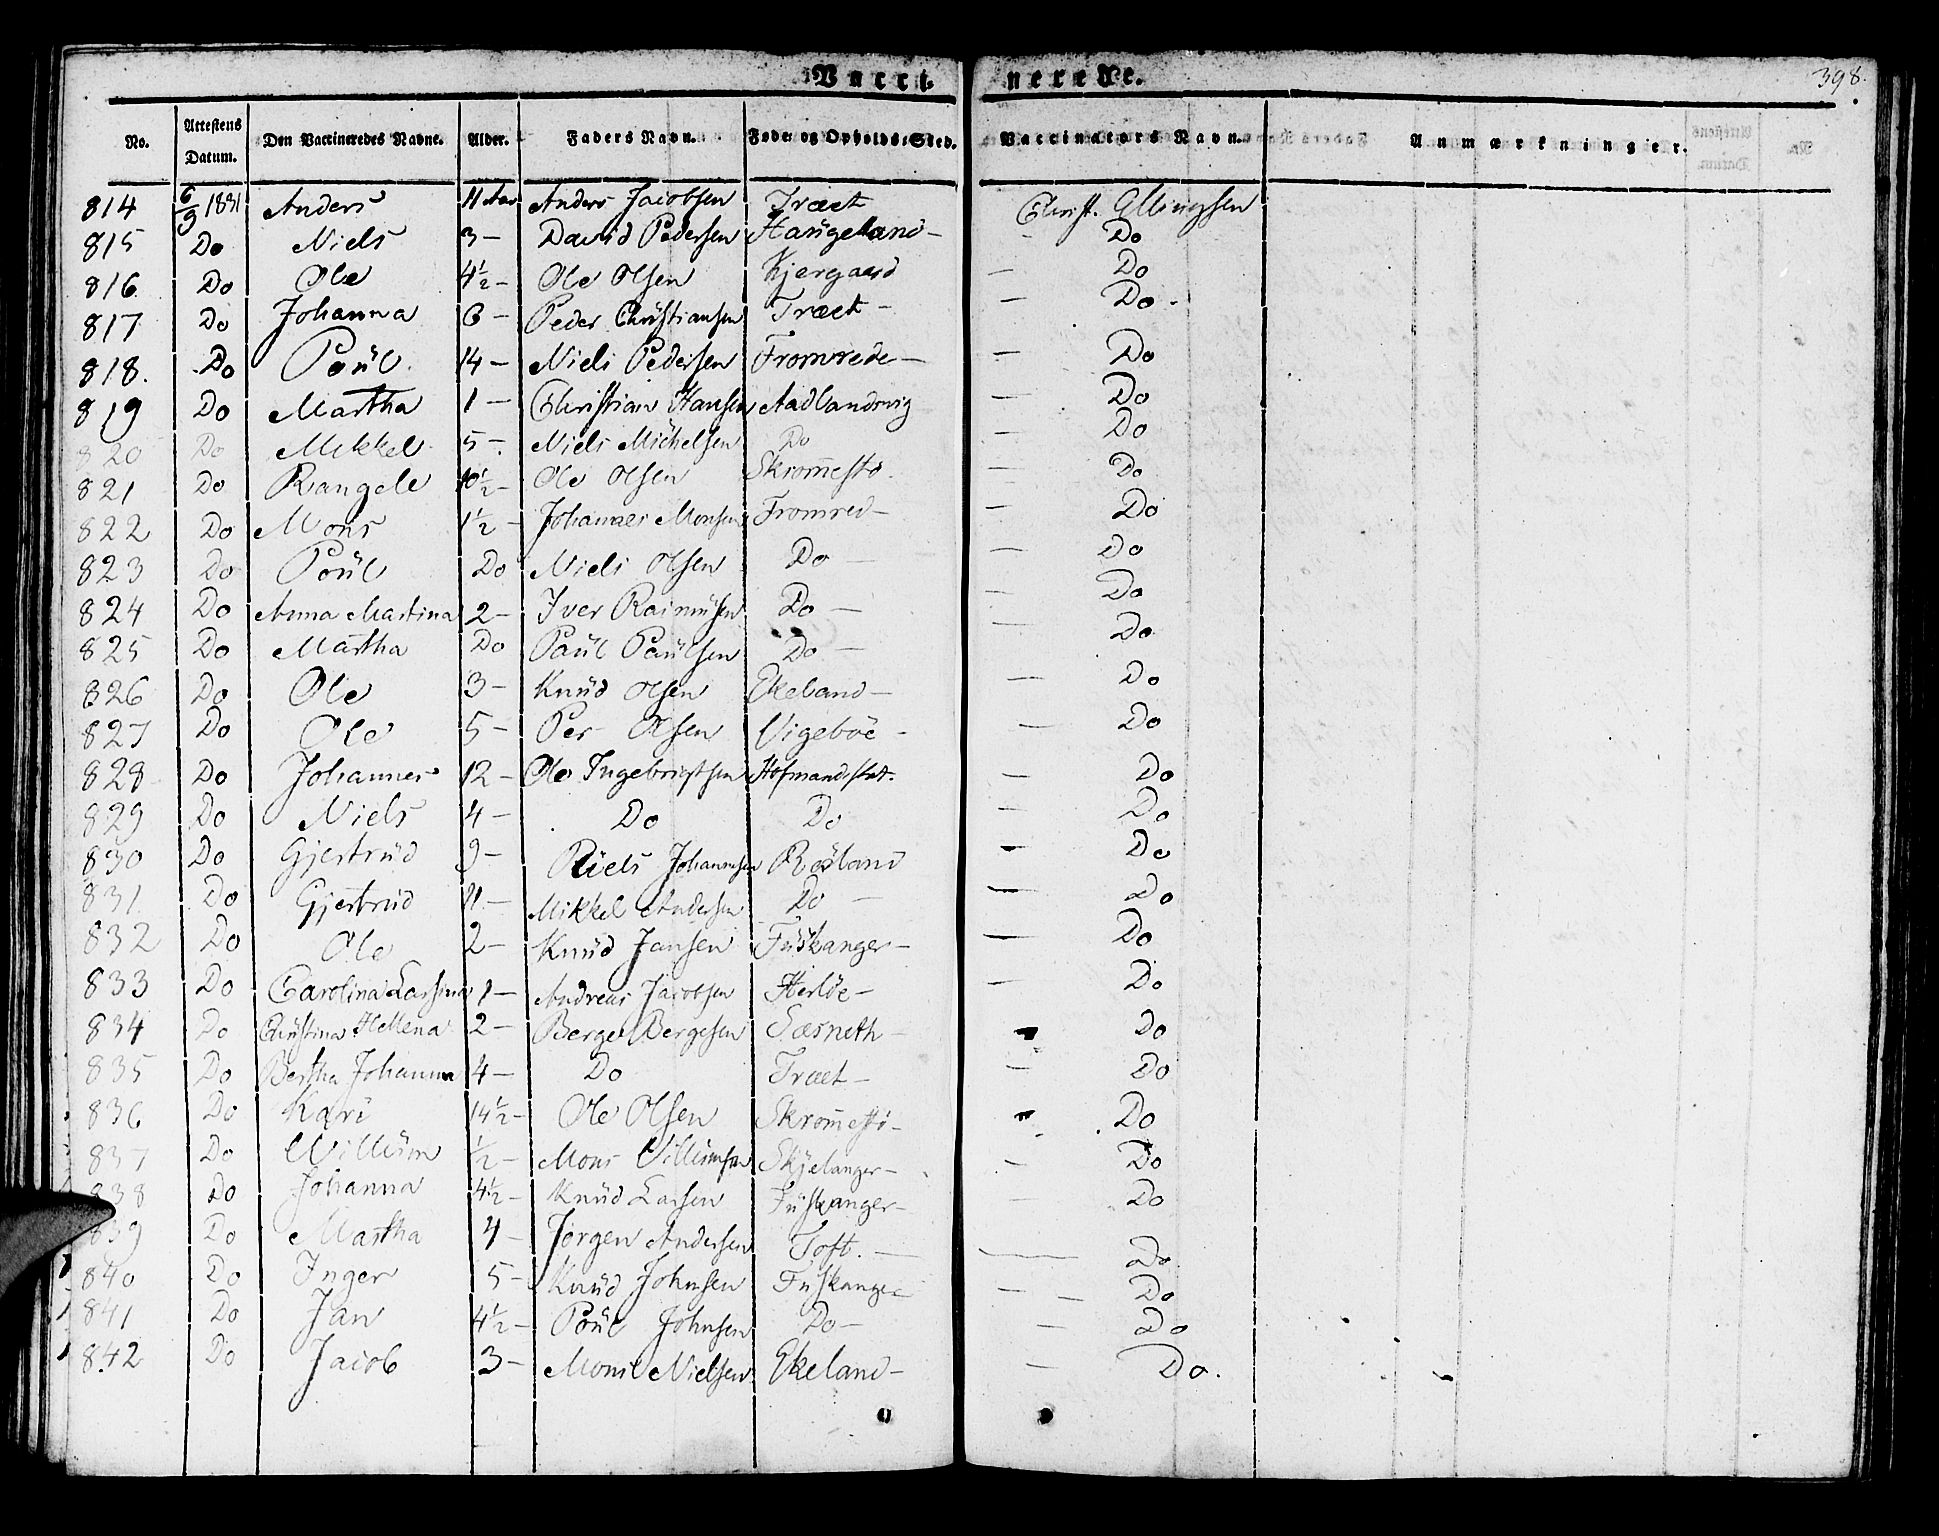 Vacci- nerede. 398.
No. Attestens Datum. Den Vaccineredes Navne. Alder. Faders Navn. Føde- og Opholds-Sted. Vaccinators Navn. Anmærkninger.
814 6/9 1831 Anders 11 Aar Anders Jacobsen Træet Christ. Ellingsen
815 Do Niels 3 — David Pedersen Haugeland — Do
816 Do Ole 4½ — Ole Olsen Kjergaard — Do
817 Do Johanna 6 — Peder Christiansen Træet — — Do -
818. Do Poül. 14 — Niels Pedersen Fromrede — — Do
819 Do Martha 1 — Christian Hansen Aadlandsvig — Do
820 Do Mikkel 5 — Niels Michelsen Do — Do
821 Do Rangele 10½ — Ole Olsen Skrom̄estø. — Do
822 Do Mons 1½ — Johannes Monsen Fromred — — Do
823 Do Poül Do Niels Olsen Do — — Do
824 Do Anna Martina 2 — Iver Rasmüsen Do — — Do
825 Do Martha Do Paül Paülsen Do — — Do
826 Do Ole 3 — Knüd Olsen Ekeland — — Do
827 Do Ole 5 — Per Olsen Vigeböe - — Do
828 Do Johannes 12 — Ole Ingebrigtsen Hofmandsfat. — Do
829 Do Niels 4 — Do Do — Do
830 Do Gjertrüd 9 — Niels Johannesen Rosland — Do
831 Do Gjertrüd 11 — Mikkel Andersen Do — — Do
832 Do Ole 2 — Knüd Jansen Füskanger — — Do
833 Do Carolina Larsina 1 — Andreas Jacobsen Herlöe — — Do
834 Do Christina Hellena 2 — Berge Bergesen Sæsneth — — Do
835 Do Bertha Johanna 4 — Do Træet — — Do
836 Do Kari 14½ — Ole Olsen Skrom̄estø — Do
837 Do Willüm ½ — Mons Villumsen Skjelanger — — Do
838 Do Johanna 4½ — Knüd Larsen Füskanger — — Do
839 Do Martha 4 — Jörgen Andersen Toft. — — Do
840 Do Inger 5 — Knüd Johnsen Füskanger — — Do
841 Do Jan 4½ — Poül Johnsen Do — — Do
842 Do Jacob 3 — Mons Nielsen Ekeland — — Do.